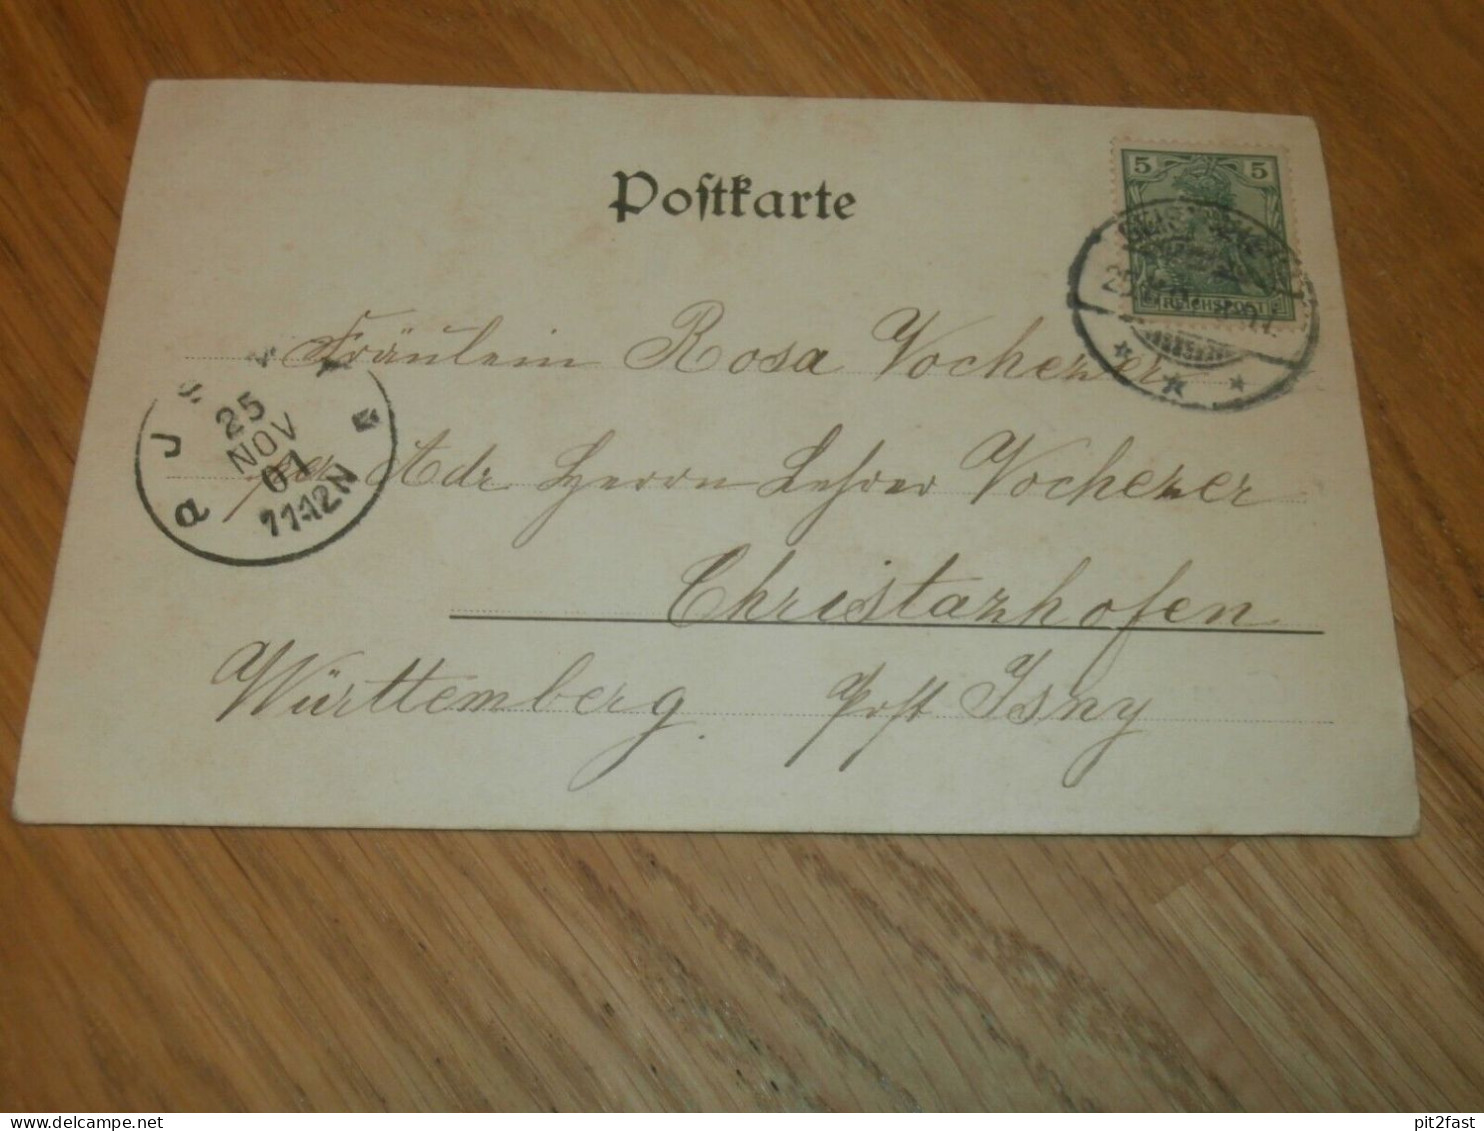 Postkarte
5 5
REICHSPOST
Fräulein Rosa Vochezer
25
NOV
01
11-12N
per Adr Herrn Lehrer Vochezer
Christazhofen
Württemberg. Post Isny
pit2fast